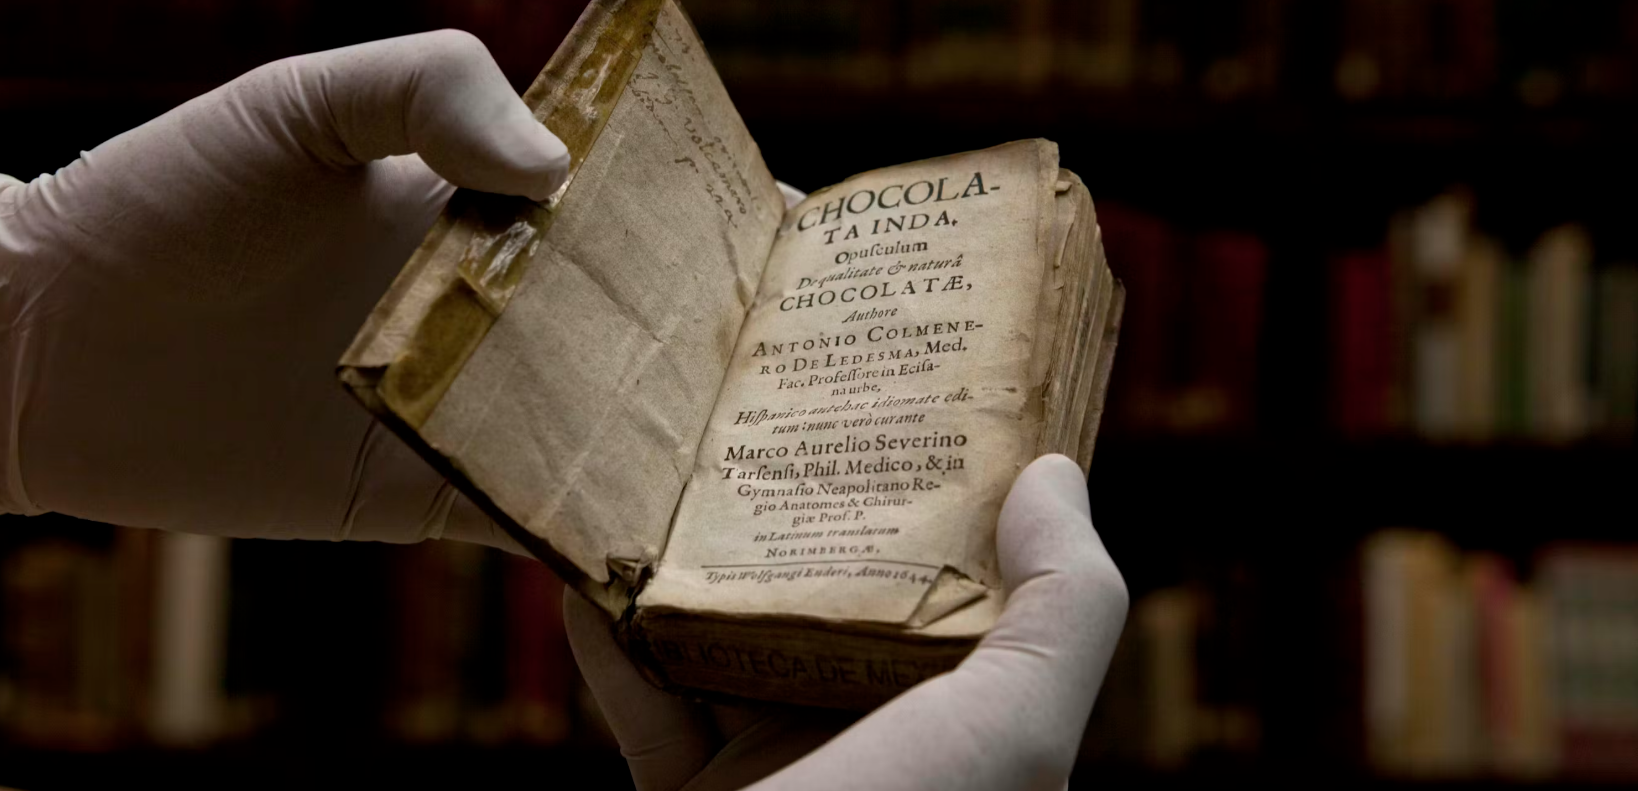 volcamaro
CHOCOLA-
TA INDA.
Opuſculum
De qualitate & naturâ
CHOCOLATÆ,
Authore
ANTONIO COLMENE-
RO DE LEDESMA, Med.
Fac. Profeſſore in Eciſa-
na urbe,
Hiſpanico antehac idiomate edi-
tum: nunc verò curante
Marco Aurelio Severino
Tarſenſi, Phil. Medico, & in
Gymnaſio Neapolitano Re-
gio Anatomes & Chirur-
giæ Prof. P.
in Latinum translatum
NORIMBERGÆ,
Typis Wolfgangi Enderi, Anno 1644.
BLIOTECA DE MEX